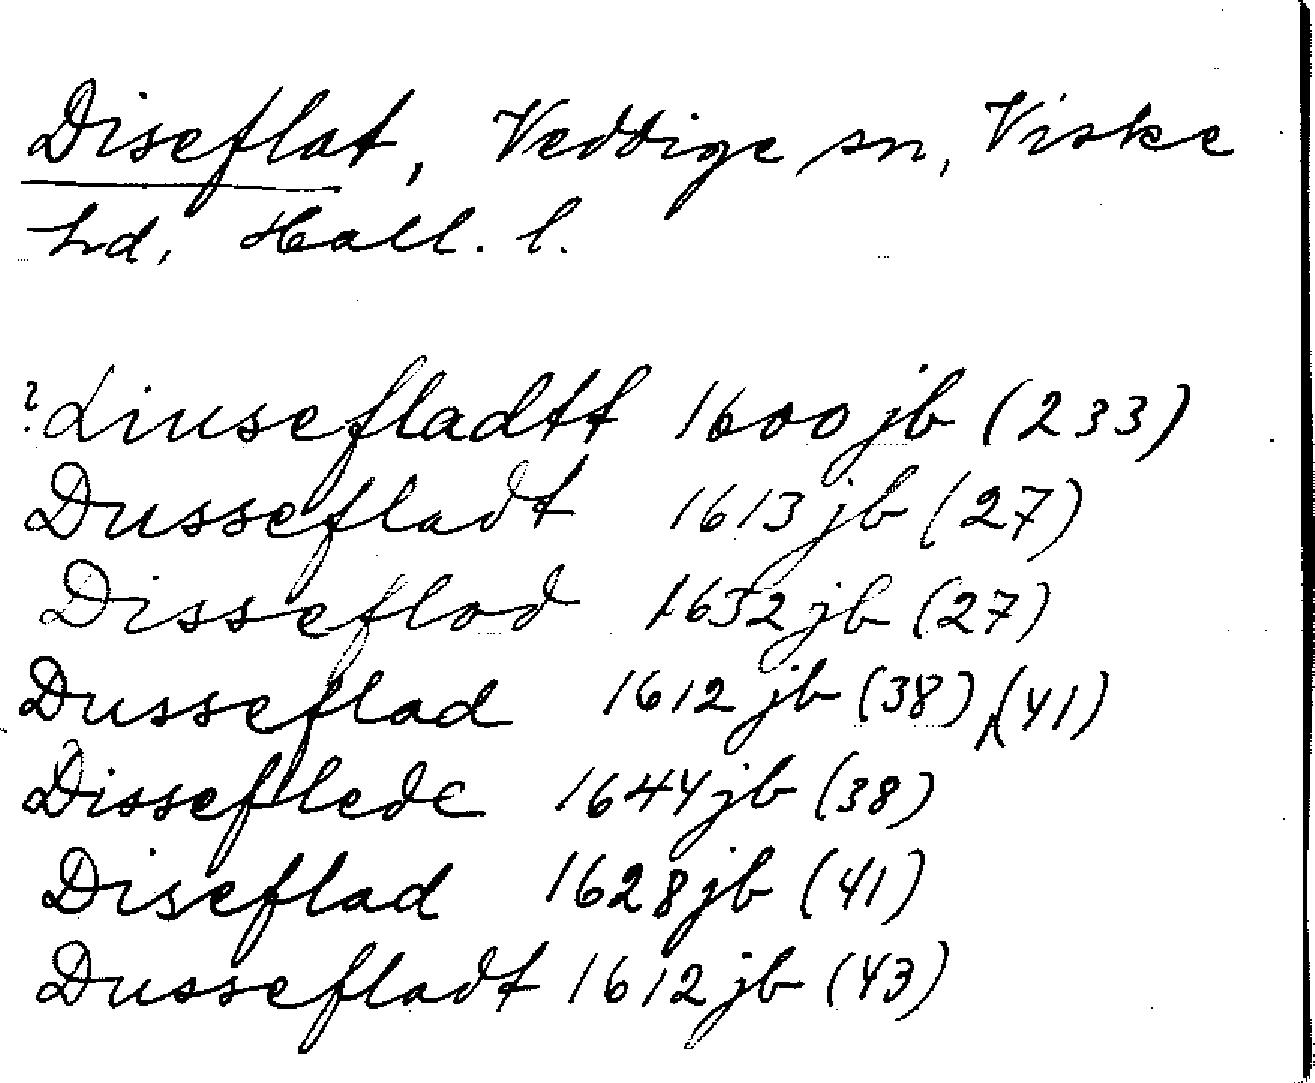 Diseflat, Veddige sn, Viske
hd, Hall. l.
? Liusefladtt 1600 jb (233)
Dussefladt 1613 jb (27)
Disseflod 1632 jb (27)
Dusseflad 1612 jb (38), (41)
Disseflede 1644 jb (38)
Diseflad 1628 jb (41)
Dussefladt 1612 jb (43)